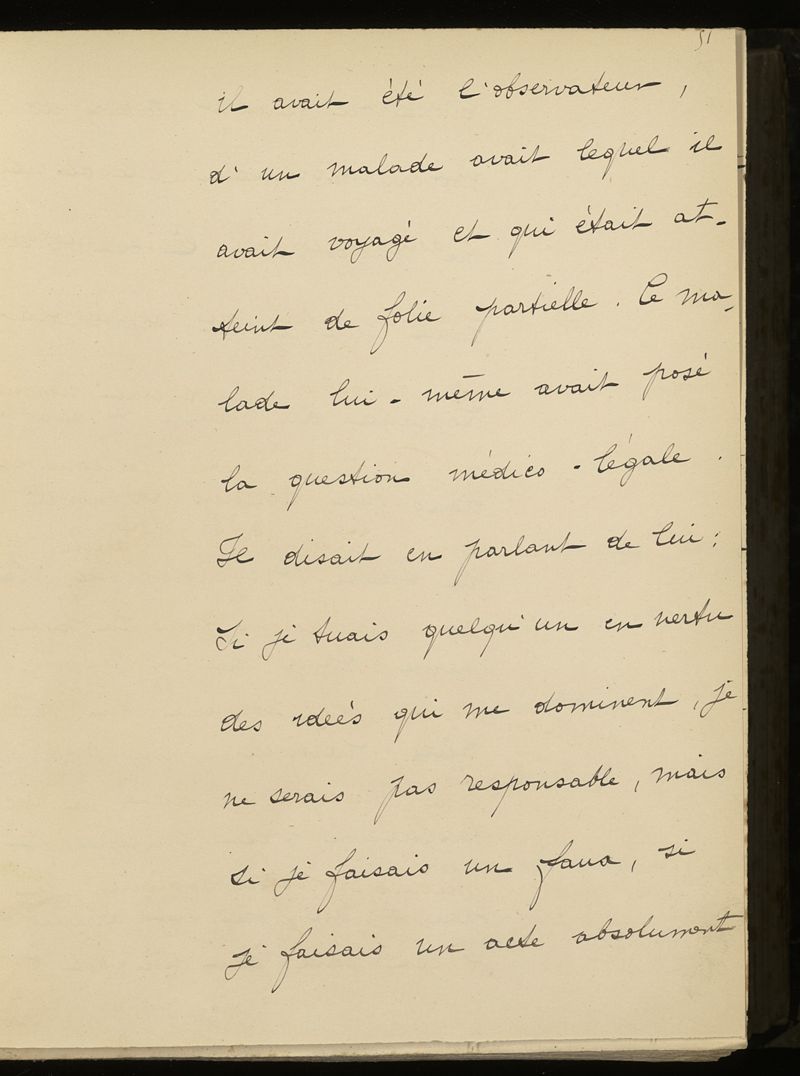 51
il avait été l'observateur,
d'un malade avait lequel il
avait voyagé et qui était at-
teint de folie partielle. Ce ma-
lade lui-même avait posé
la question médico-légale.
Il disait en parlant de lui:
Si je tuais quelqu'un en vertu
des ideés qui me dominent, je
ne serais pas responsable, mais
si je faisais un faux, si
je faisais un acte absolument